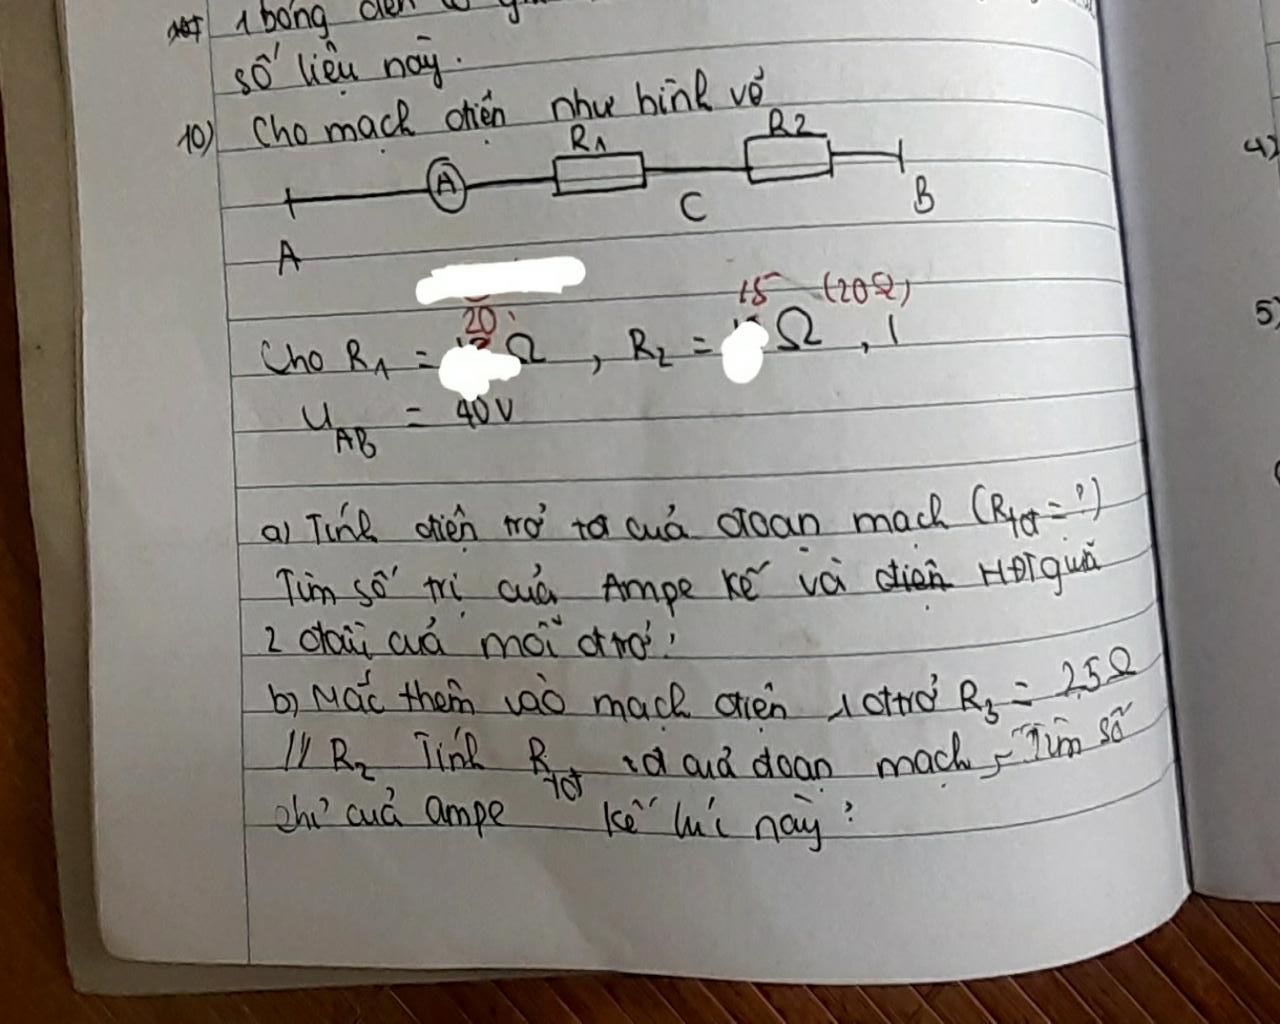 1 bóng
số liệu này.
10) Cho mạch điện như hình vẽ
R1 R2
A
C B
A
15 (20Ω)
20
Cho R1 = Ω , R2 = Ω , 1
UAB = 40V
a) Tính điện trở tđ cuả đoan mạch (Rtđ = ?)
Tìm số trị cuả Ampe kế và điện HĐT giưã
2 đâù cuả mỗi đtrở?
b) Mắc thêm vào mạch điện 1 đtrở R3 = 25Ω
// R2 Tính Rtđ tđ cuả đoạn mạch, Tìm số
chỉ cuả ampe kế lúc này?
4)
5)